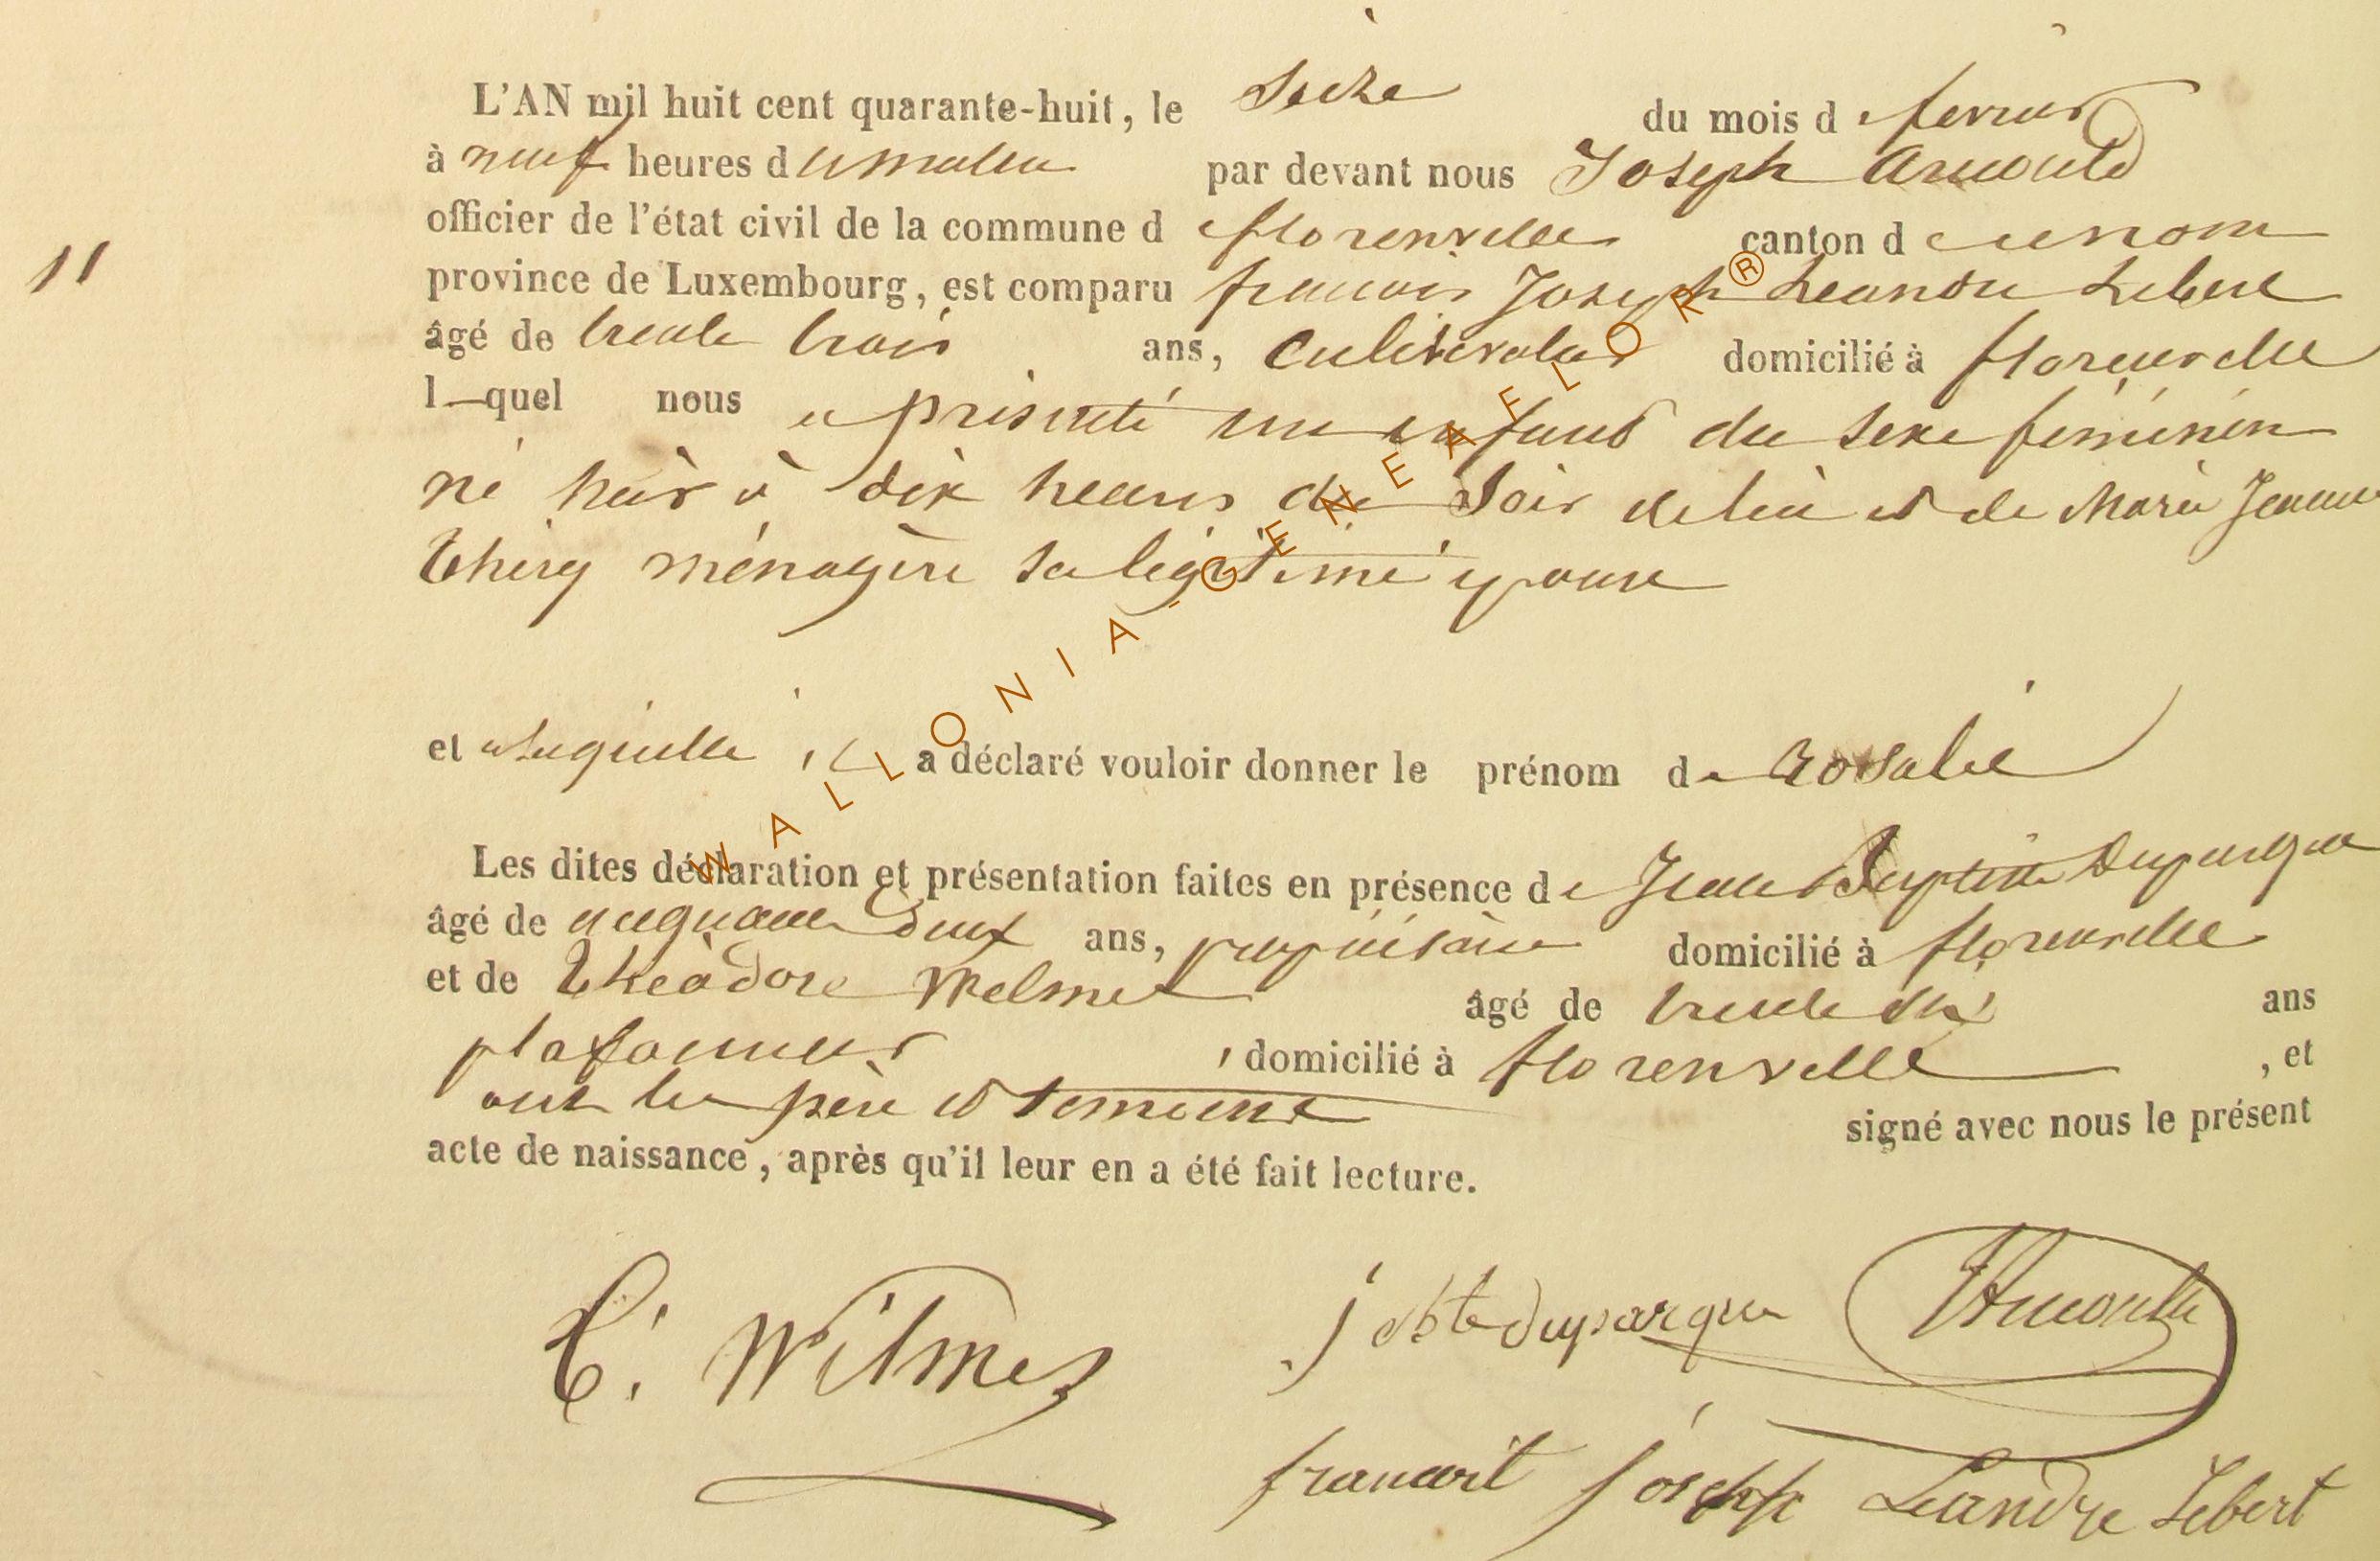 L'AN mil huit cent quarante-huit, le Seize du mois de fevrier
à neuf heures du matin par devant nous Joseph Arnould
officier de l'état civil de la commune de florenville canton de ce nom
province de Luxembourg, est comparu francois Joseph Leandre Lebert
âgé de trente trois ans, Cultivateur domicilié à florenville
11
l—quel nous a présenté un enfant du sexe féminin
né hier à dix heures du Soir de lui et de Marie Jeanne
Thiry ménagère sa légitime épouse
et auquelle il a déclaré vouloir donner le prénom de Rosalie
Les dites déclaration et présentation faites en présence de Jean Baptiste Duparque
âgé de cinquante deux ans, propriétaire domicilié à florenville
et de Théodore Welmet âgé de trente six ans
plafonneur , domicilié à florenville , et
ont les père et temoins signé avec nous le présent
acte de naissance, après qu'il leur en a été fait lecture.
T. Wilmes j bte duparque JArnould
francoit joseph Leandre Lebert
WALLONIA-GENEAFLOR®